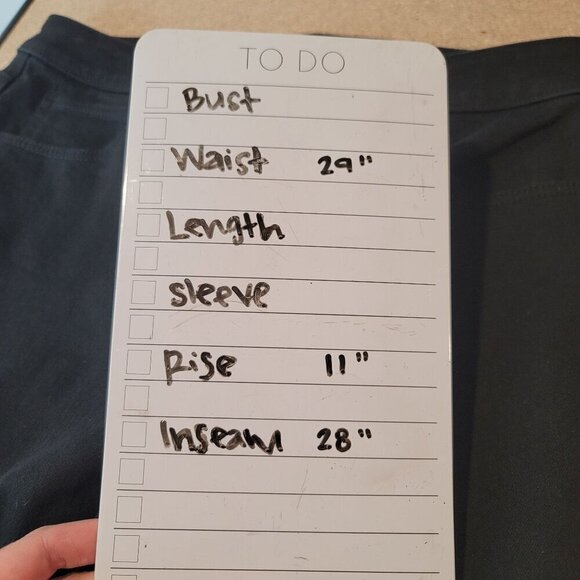 TO DO
Bust
Waist 29"
Length
sleeve
Rise 11"
Inseam 28"